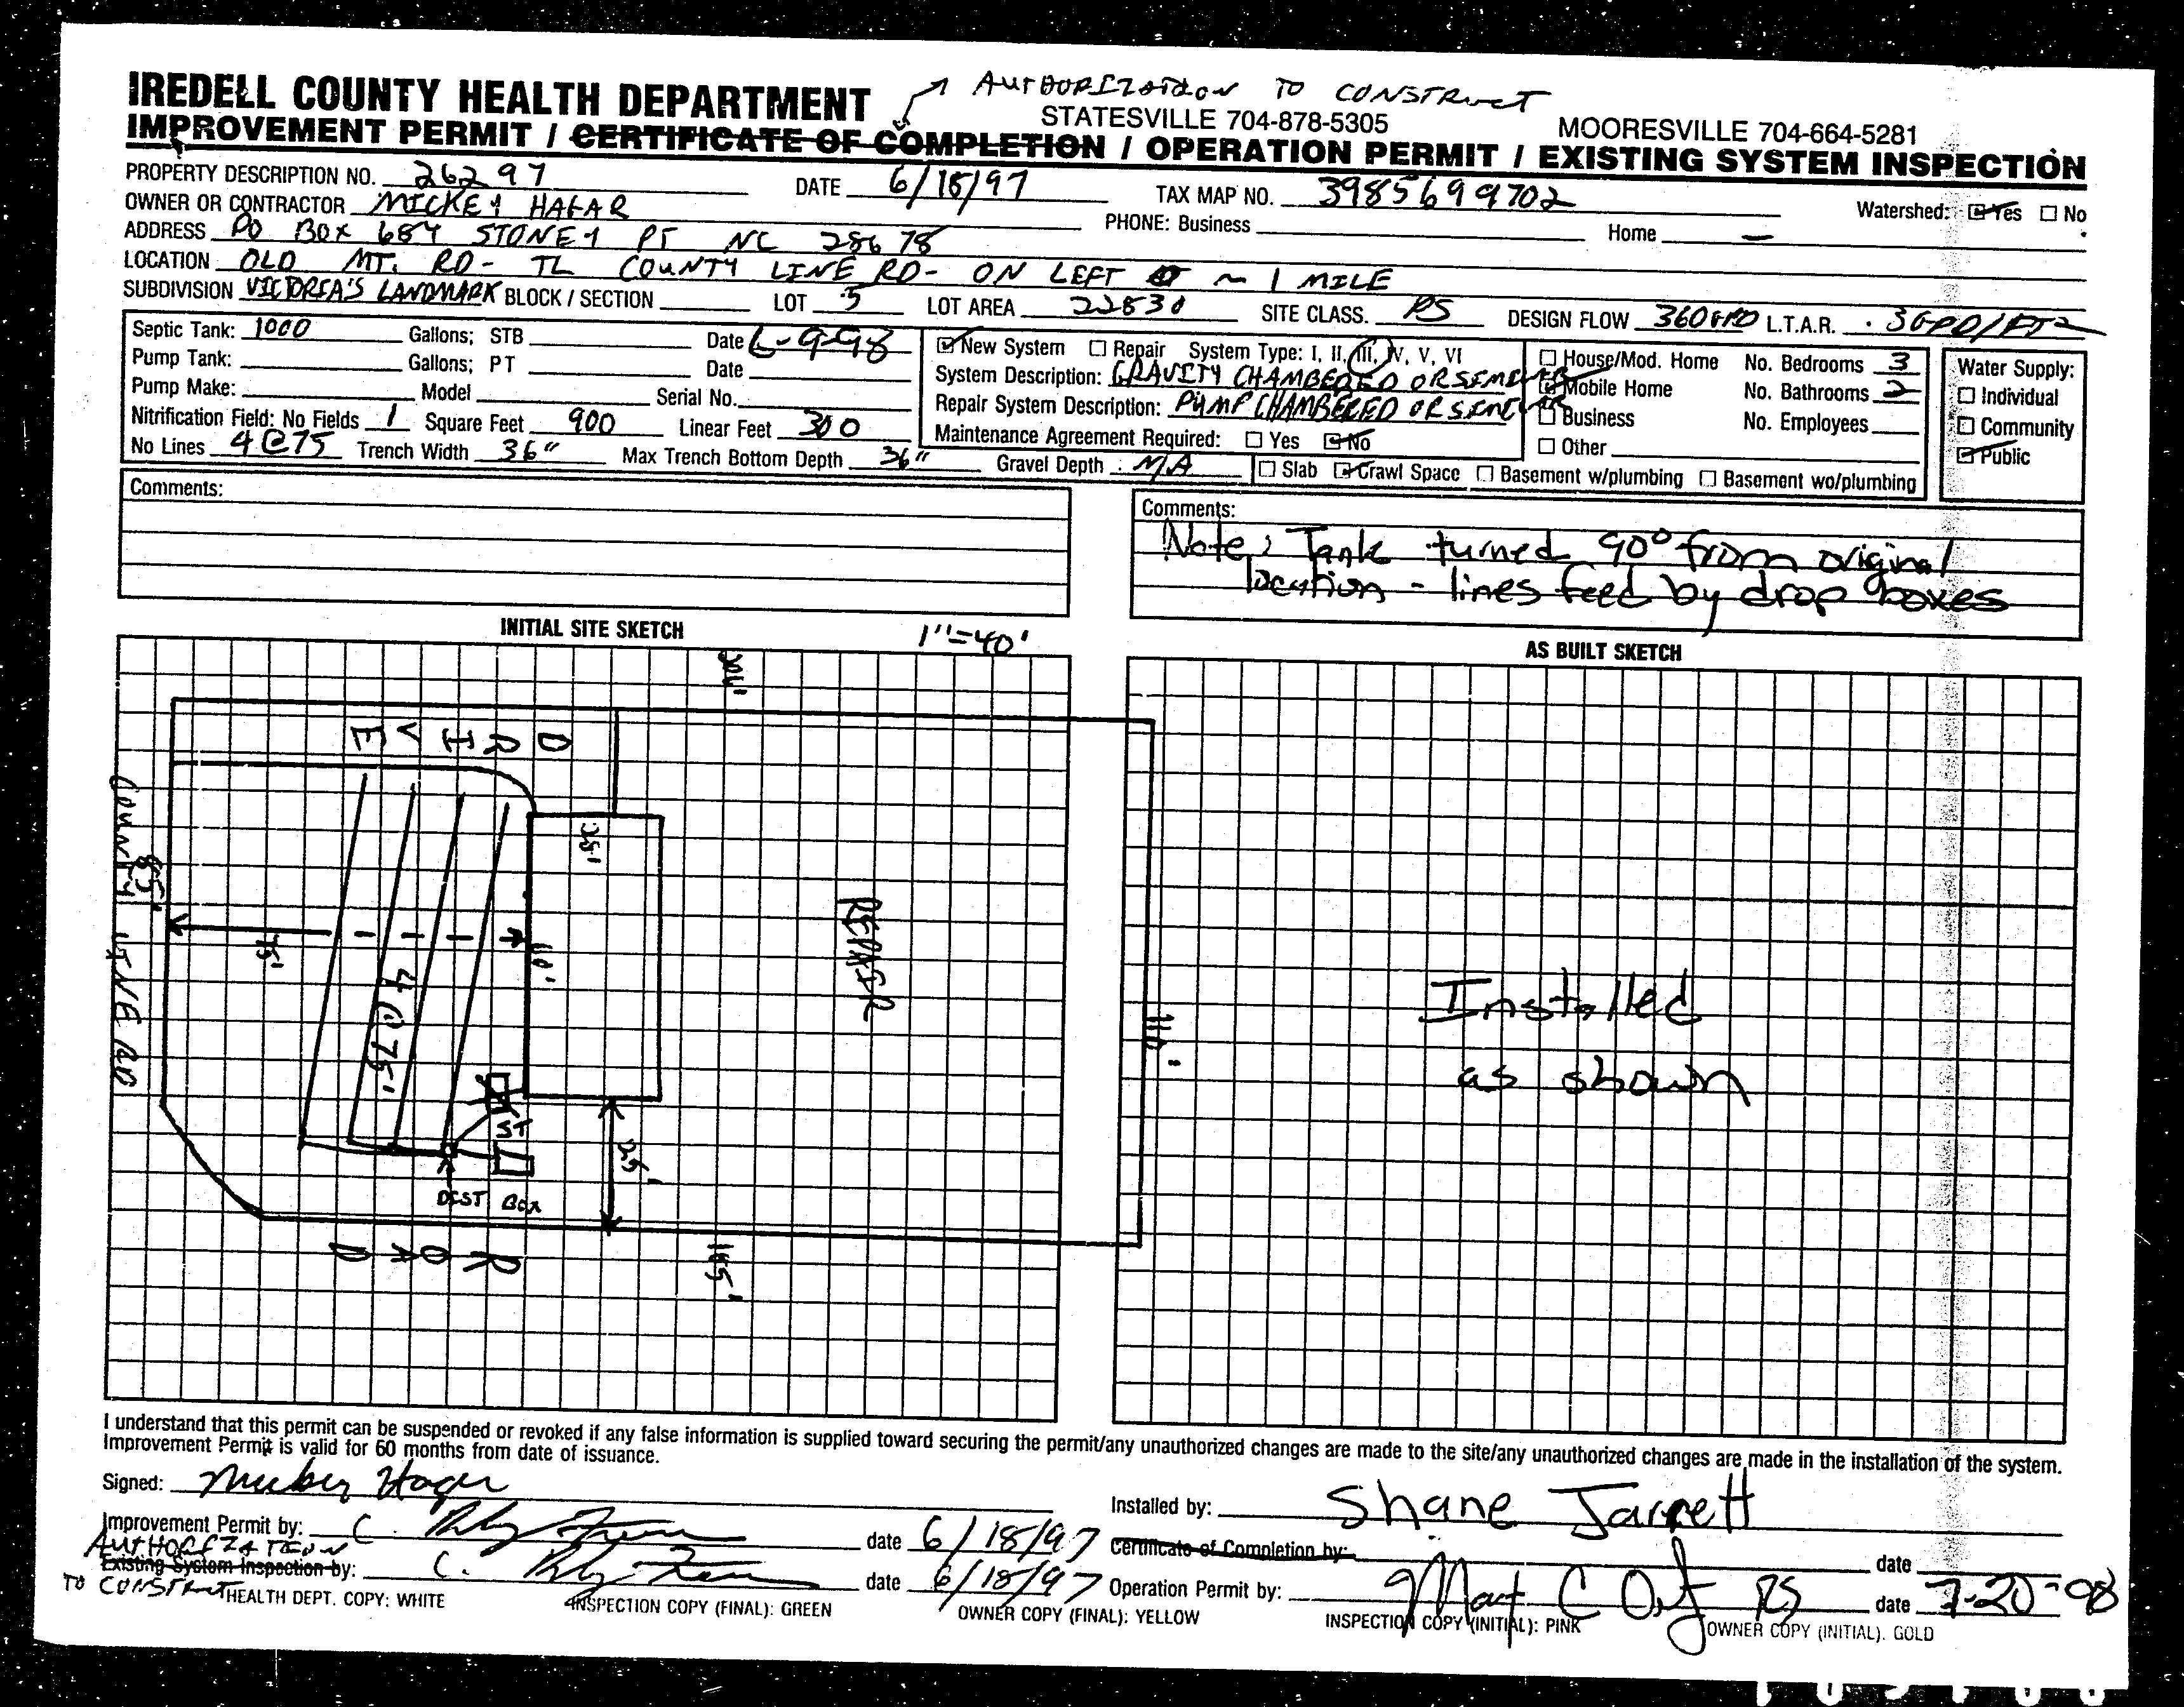 AUTHORIZATION TO CONSTRUCT
IREDELL COUNTY HEALTH DEPARTMENT
STATESVILLE 704-878-5305 MOORESVILLE 704-664-5281
IMPROVEMENT PERMIT / CERTIFICATE OF COMPLETION / OPERATION PERMIT / EXISTING SYSTEM INSPECTION
PROPERTY DESCRIPTION NO. 26297 DATE 6/18/97 TAX MAP NO. 3985699702 Watershed: Yes No
OWNER OR CONTRACTOR MICKEY HAGAR PHONE: Business Home –
ADDRESS PO BOX 684 STONEY PT NC 28678
LOCATION OLD MT. RD- TL COUNTY LINE RD- ON LEFT ~ 1 MILE
SUBDIVISION VICTORIA'S LANDMARK BLOCK / SECTION LOT 5 LOT AREA 22830 SITE CLASS. PS DESIGN FLOW 360GPD L.T.A.R. .3GPD/FT2
Septic Tank: 1000 Gallons; STB Date 6-9-98
Pump Tank: Gallons; PT Date
Pump Make: Model Serial No.
Nitrification Field: No Fields 1 Square Feet 900 Linear Feet 300
No Lines 4@75 Trench Width 36" Max Trench Bottom Depth 36" Gravel Depth NA
New System Repair System Type: I, II, III, IV, V, VI
System Description: GRAVITY CHAMBERED OR
Repair System Description: PUMP CHAMBERED OR
Maintenance Agreement Required: Yes No
House/Mod. Home No. Bedrooms 3
Mobile Home No. Bathrooms 2
Business No. Employees
Other
Slab Crawl Space Basement w/plumbing Basement wo/plumbing
Water Supply:
Individual
Community
Public
Comments:
Comments:
Note: Tank turned 90° from original
location - lines feed by drop boxes
INITIAL SITE SKETCH 1"=40'
AS BUILT SKETCH
DRIVE
COUNTY LINE RD
85'
75'
10'
4@75'
REPAIR
110'
ST
25'
DIST BOX
ROAD
185'
Installed
as shown
I understand that this permit can be suspended or revoked if any false information is supplied toward securing the permit/any unauthorized changes are made to the site/any unauthorized changes are made in the installation of the system.
Improvement Permit is valid for 60 months from date of issuance.
Signed: Mickey Hager
Installed by: Shane Jarrett
Improvement Permit by: C. date 6/18/97
Certificate of Completion by: date
AUTHORIZATION
Existing System Inspection by: C. date 6/18/97
TO CONSTRUCT
Operation Permit by: RS date 7-20-98
HEALTH DEPT. COPY: WHITE INSPECTION COPY (FINAL): GREEN OWNER COPY (FINAL): YELLOW INSPECTION COPY (INITIAL): PINK OWNER COPY (INITIAL). GOLD